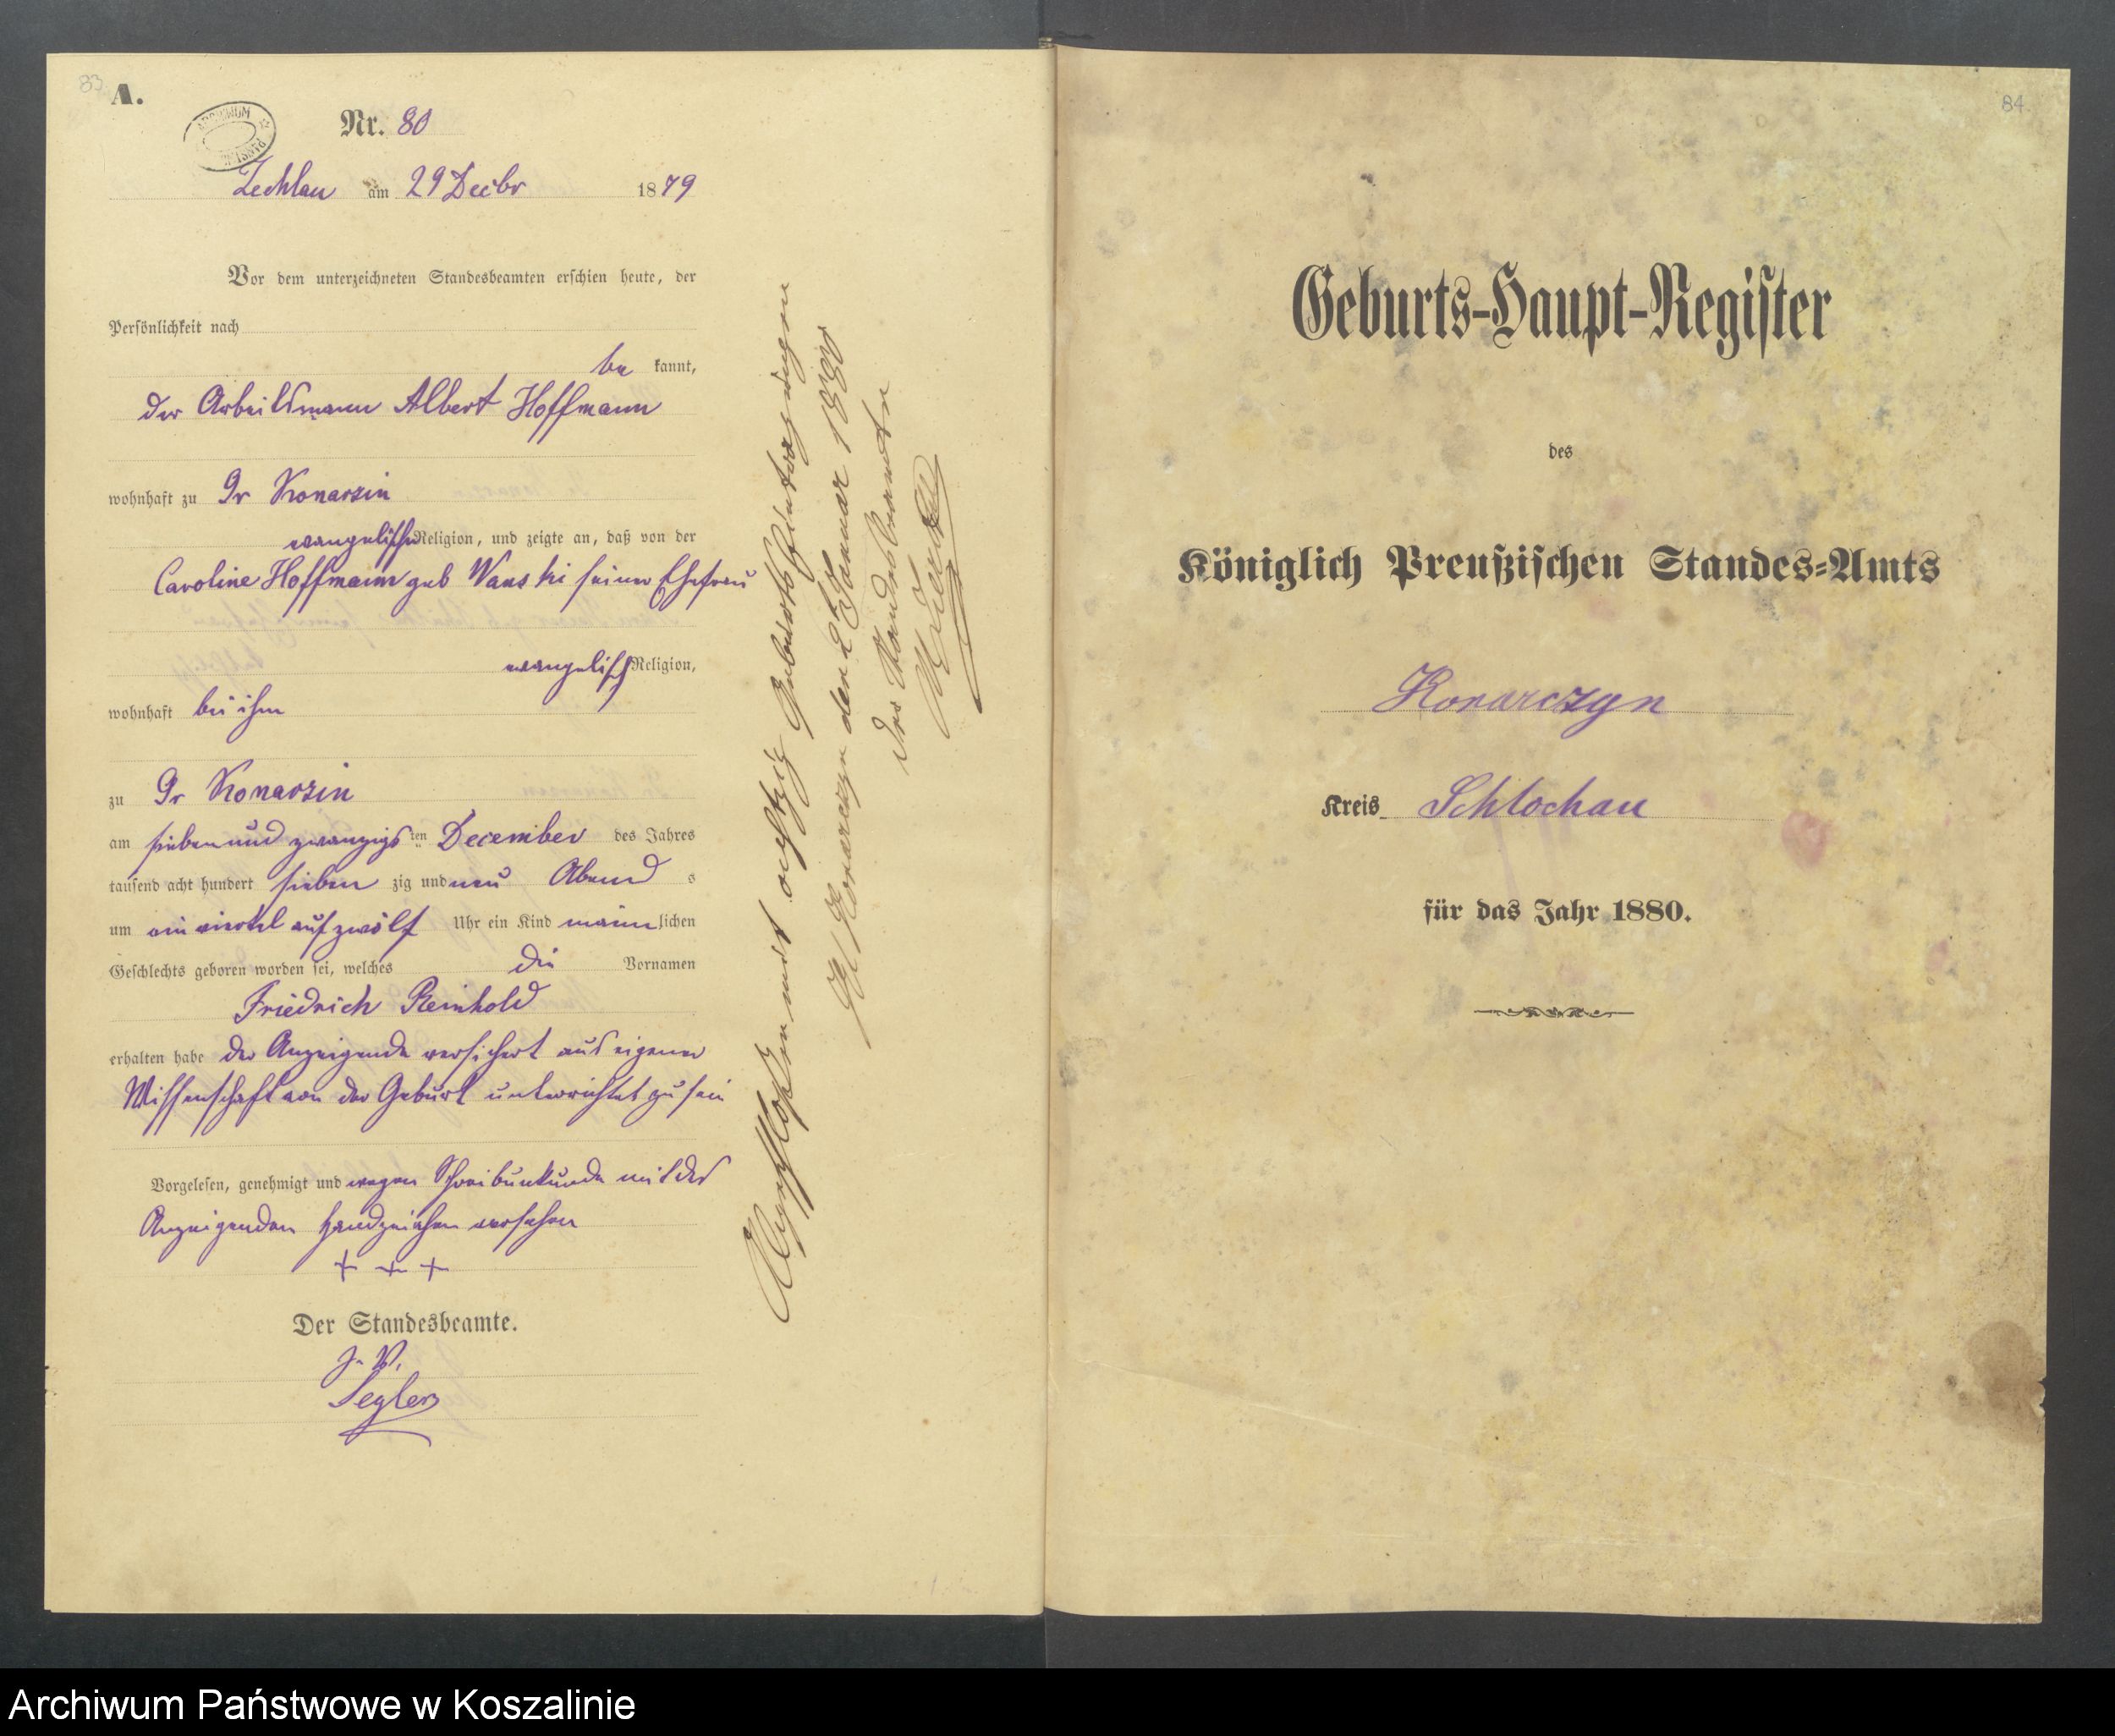 83
A.
ARCHIWUM
Nr. 80
Zechlau am 29 Decbr 1879
Vor dem unterzeichneten Standesbeamten erschien heute, der
Persönlichkeit nach
be kannt,
der Arbeitsmann Albert Hoffmann
wohnhaft zu Gr Konarzin
evangelischer Religion, und zeigte an, daß von der
Caroline Hoffmann geb Wanski seiner Ehefrau
evangelisch Religion,
wohnhaft bei ihm
zu Gr Konarzin
am sieben und zwanzigsten December des Jahres
tausend acht hundert sieben zig und neun Abend s
um ein viertel auf zwölf Uhr ein Kind männlichen
Geschlechts geboren worden sei, welches die Vornamen
Friedrich Reinhold
erhalten habe der Anzeigende versichert aus eigener
Wissenschaft von der Geburt unterrichtet zu sein
Vorgelesen, genehmigt und wegen Schreibunkunde mit des
Anzeigenden Handzeichen versehen
+ + +
Der Standesbeamte.
J. V.
Segler
Abgeschlossen mit achtzig Geburts Eintragungen
Gr Konarczyn den 2t Januar 1880
Der Standesbeamte
84
Geburts-Haupt-Register
des
Königlich Preußischen Standes-Amts
Konarczyn
Kreis Schlochau
für das Jahr 1880.
Archiwum Państwowe w Koszalinie